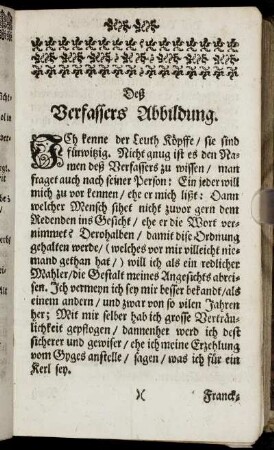 Deß
Verfassers Abbildung.
ICh kenne der Leuth Köpffe / sie sind
fürwitzig. Nicht gnug ist es den Na-
men deß Verfassers zu wissen / man
fraget auch nach seiner Person: Ein jeder will
mich zu vor kennen / ehe er mich lißt: Dann
welcher Mensch sihet nicht zuvor gern dem
Redenden ins Gesicht / ehe er die Wort ver-
nimmet? Derohalben / damit dise Ordnung
gehalten werde / (welches vor mir villeicht nie-
mand gethan hat /) will ich als ein redlicher
Mahler / die Gestalt meines Angesichts abreis-
sen. Ich vermeyn ich sey mir besser bekandt / als
einem andern / und zwar von so vilen Jahren
her; Mit mir selber hab ich grosse Verträu-
lichkeit gepflogen / dannenher werd ich dest
sicherer und gewiser / ehe ich meine Erzehlung
vom Gyges anstelle / sagen / was ich für ein
Kerl sey.
)( Franck-